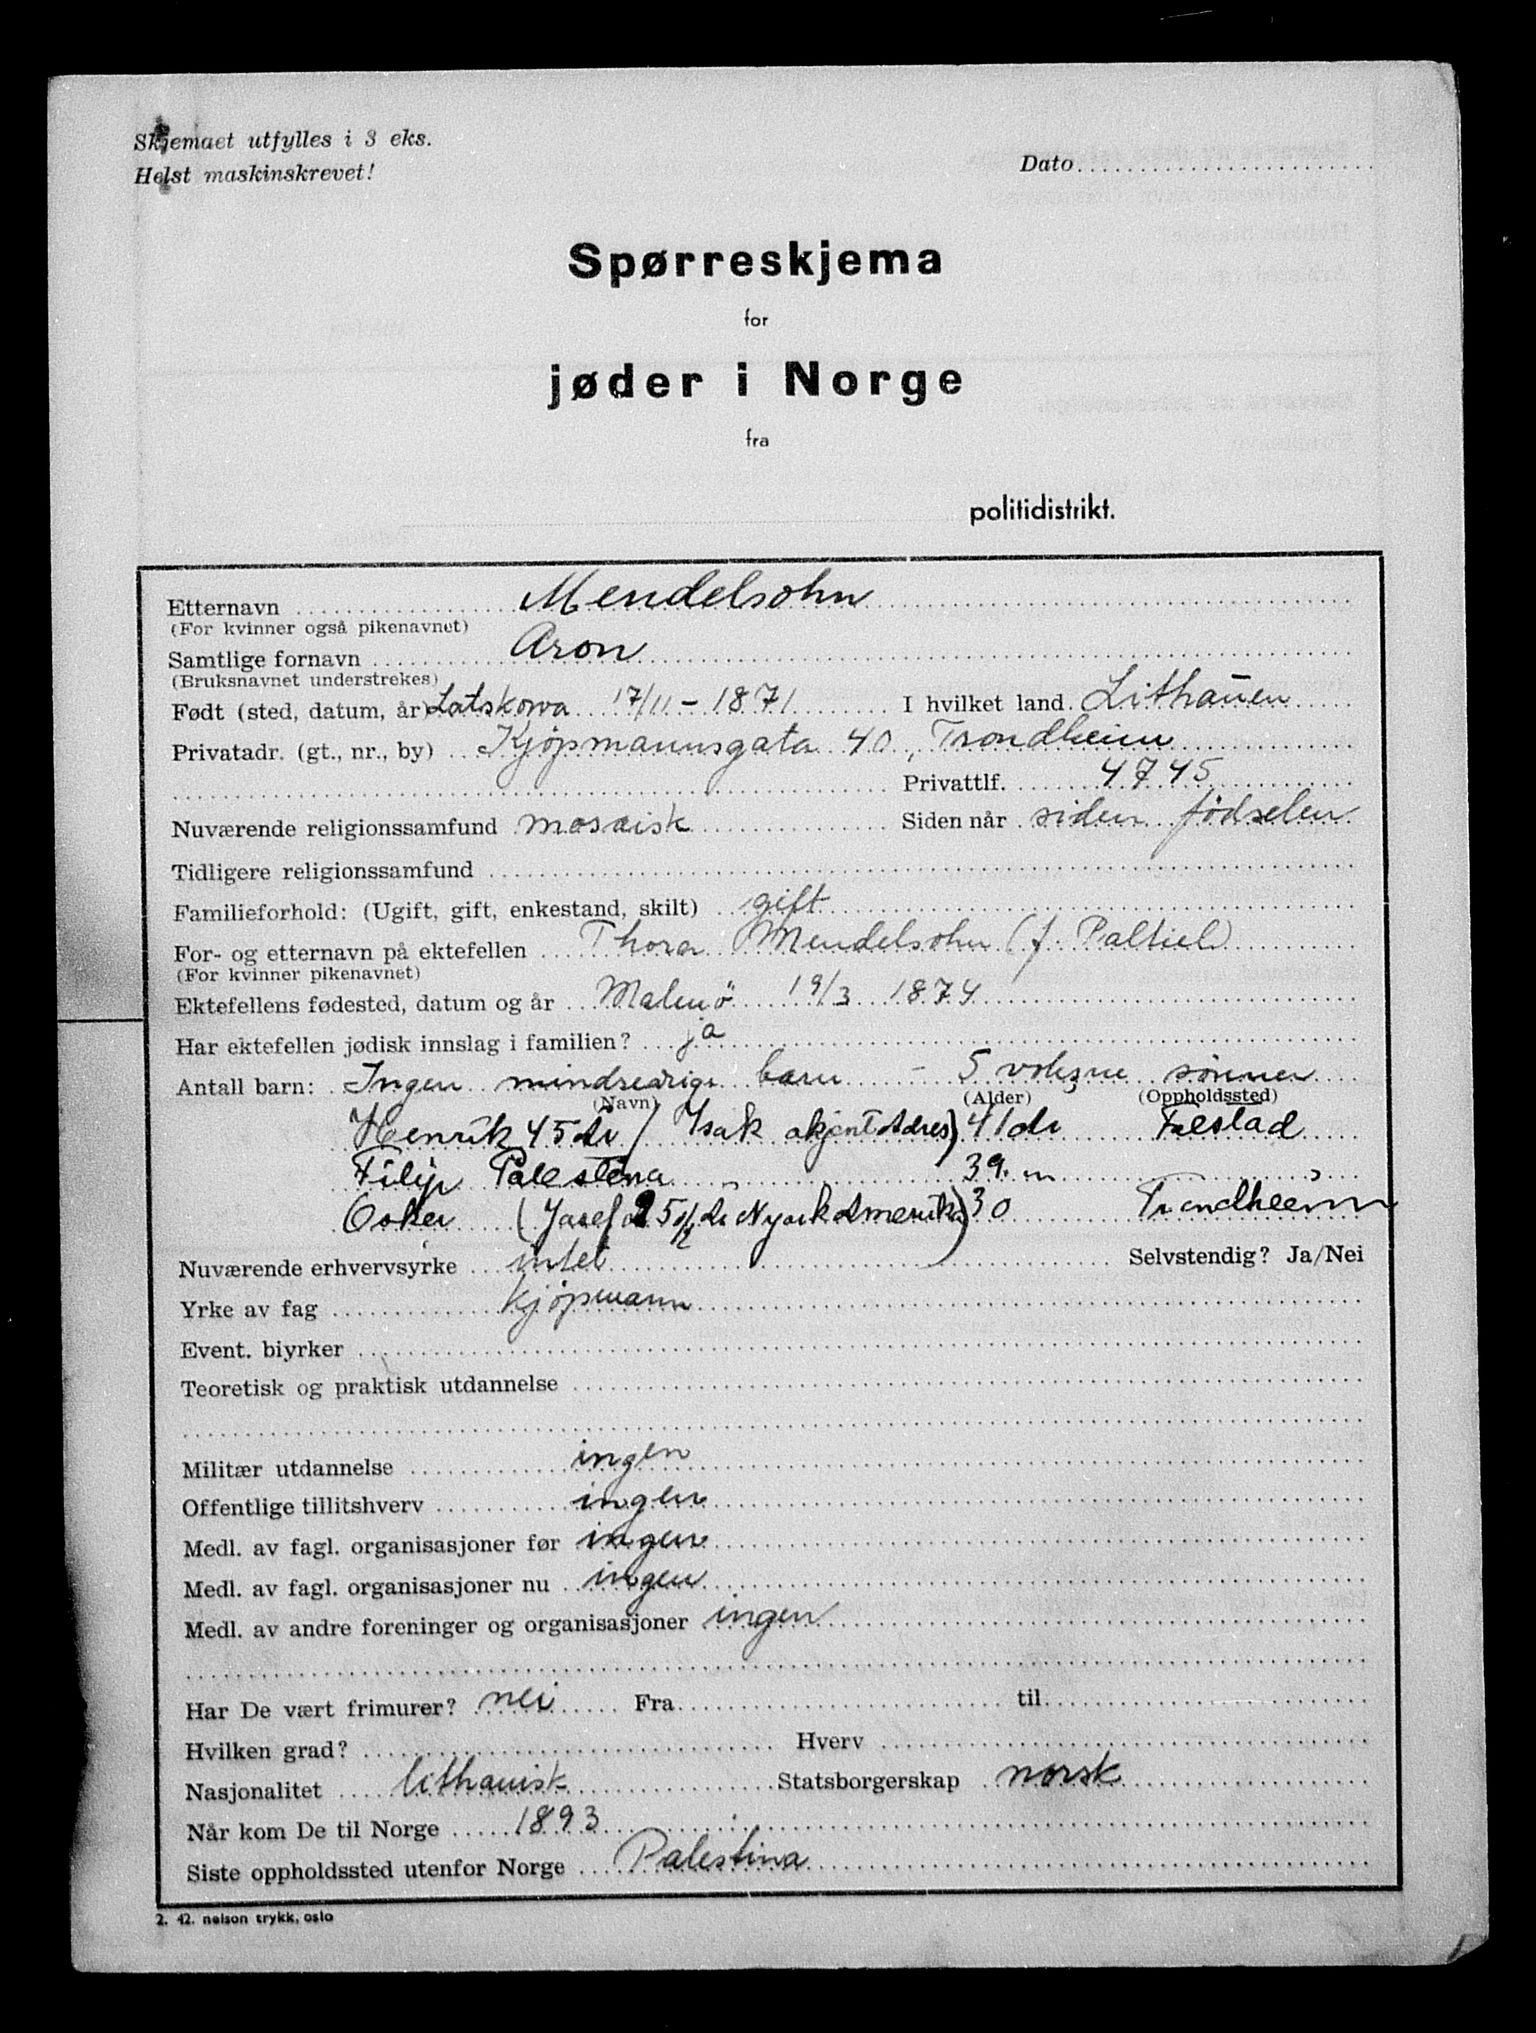 Skjemaet utfylles i 3 eks.
Helst maskinskrevet!
Dato
Spørreskjema
for
jøder i Norge
fra
politidistrikt.
Etternavn Mendelsohn
(For kvinner også pikenavnet)
Samtlige fornavn Aron
(Bruksnavnet understrekes)
Født (sted, datum, år) Latskowa 17/11 - 1871 I hvilket land Lithauen
Privatadr. (gt., nr., by) Kjøpmannsgata 40, Trondheim
Privattlf. 4745
Nuværende religionssamfund mosaisk Siden når siden fødselen
Tidligere religionssamfund
Familieforhold: (Ugift, gift, enkestand, skilt) gift
For- og etternavn på ektefellen Thora Mendelsohn (f. Paltiel)
(For kvinner pikenavnet)
Ektefellens fødested, datum og år Malmö 19/3 1874
Har ektefellen jødisk innslag i familien? ja
Antall barn: Ingen mindreårige barn - 5 voksne sønner
(Navn) (Alder) (Oppholdssted)
Henrik 45 år / Isak Adres) 41 år
Filip Palestina 39 "
Oskar (Josef 25 1/2 år Nyork Amerika) 30 Trondheim
Nuværende erhvervsyrke intet Selvstendig? Ja/Nei
Yrke av fag Kjøpmann
Event. biyrker
Teoretisk og praktisk utdannelse
Militær utdannelse ingen
Offentlige tillitshverv ingen
Medl. av fagl. organisasjoner før ingen
Medl. av fagl. organisasjoner nu ingen
Medl. av andre foreninger og organisasjoner ingen
Har De vært frimurer? nei Fra til
Hvilken grad? Hverv
Nasjonalitet lithauisk Statsborgerskap norsk
Når kom De til Norge 1893
Siste oppholdssted utenfor Norge Palestina
2. 42. nelson trykk, oslo